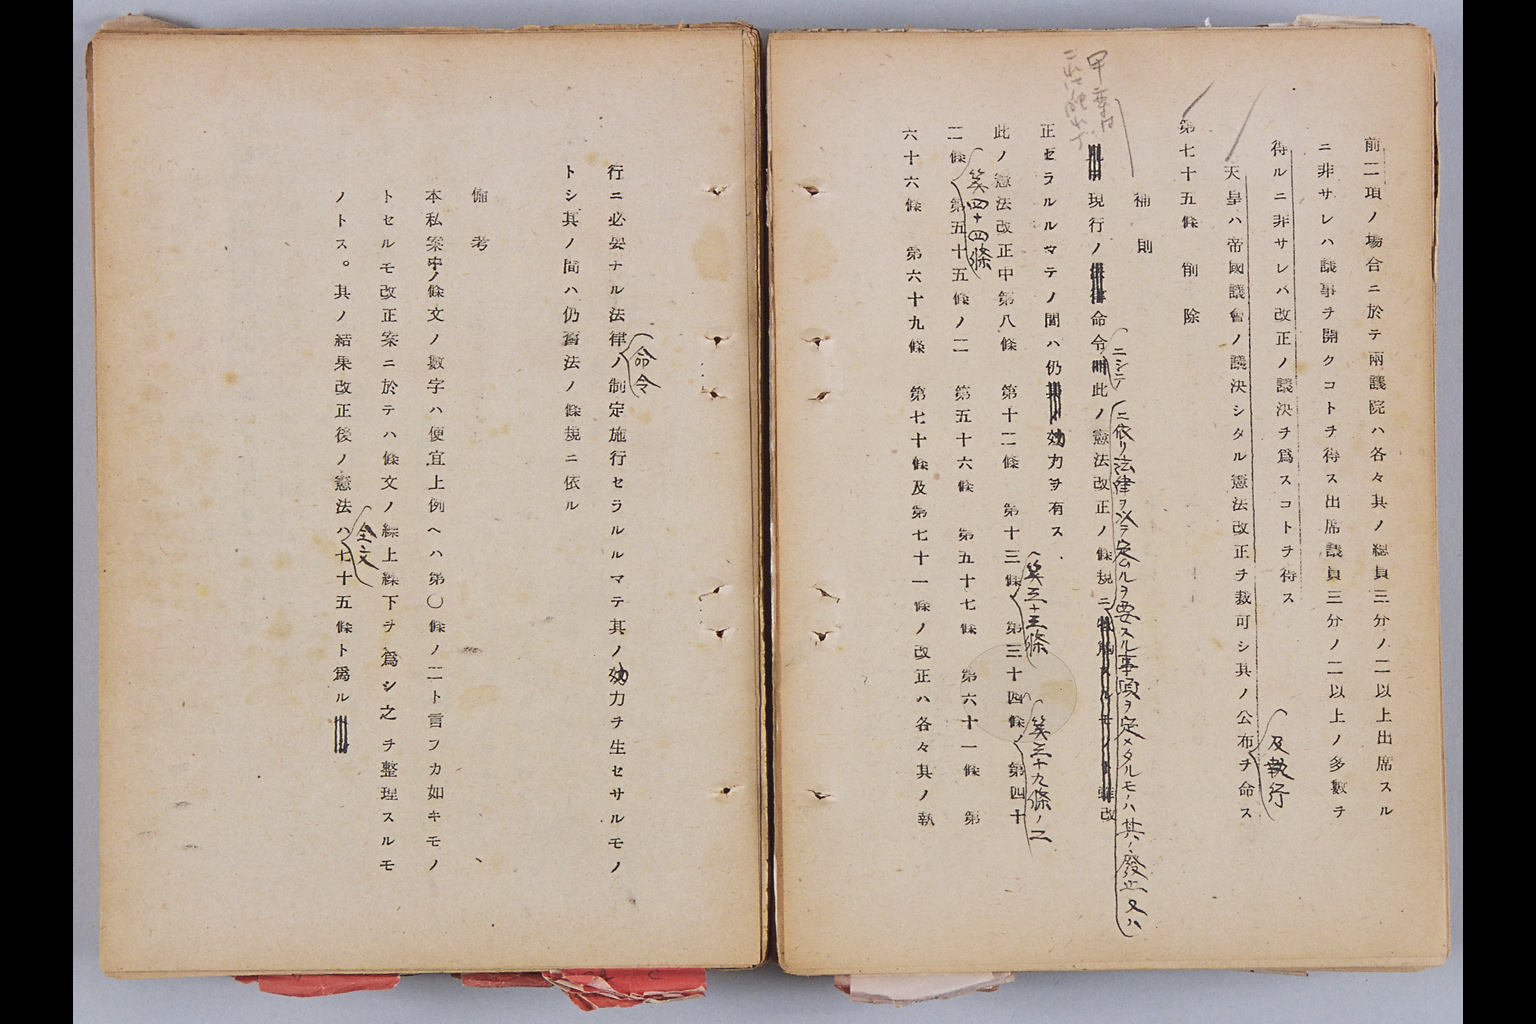 前二項ノ場合ニ於テ兩議院ハ各々其ノ總員三分ノ二以上出席スル
ニ非サレハ議事ヲ開クコトヲ得ス出席議員三分ノ二以上ノ多數ヲ
得ルニ非サレバ改正ノ議決ヲ爲スコトヲ得ス
天皇ハ帝國議會ノ議決シタル憲法改正ヲ裁可シ其ノ公布ヲ命ス
及執行
第七十五條 削除
補則
現行ノ命令此ノ憲法改正ノ條規ニ改
ニシテ
ニ依リ法律ヲ以テ定ムルヲ要スル事項ヲ定メタルモノハ其ノ廢止又ハ
正セラルルマテノ間ハ仍効力ヲ有ス
此ノ憲法改正中第八條 第十二條 第十三條 第三十四條 第四十
第三十五條
第三十九條ノ二
二條 第五十五條ノ二 第五十六條 第五十七條 第六十一條 第
第四十四條
六十六條 第六十九條 第七十條及第七十一條ノ改正ハ各々其ノ執
行ニ必要ナル法律ノ制定施行セラルルマテ其ノ効力ヲ生セサルモノ
命令
トシ其ノ間ハ仍舊法ノ條規ニ依ル
備考
本私案中ノ條文ノ數字ハ便宜上例ヘハ第〇條ノ二ト言フカ如キモノ
トセルモ改正案ニ於テハ條文ノ繰上繰下ヲ爲シ之ヲ整理スルモ
ノトス。其ノ結果改正後ノ憲法ハ七十五條ト爲ル
全文